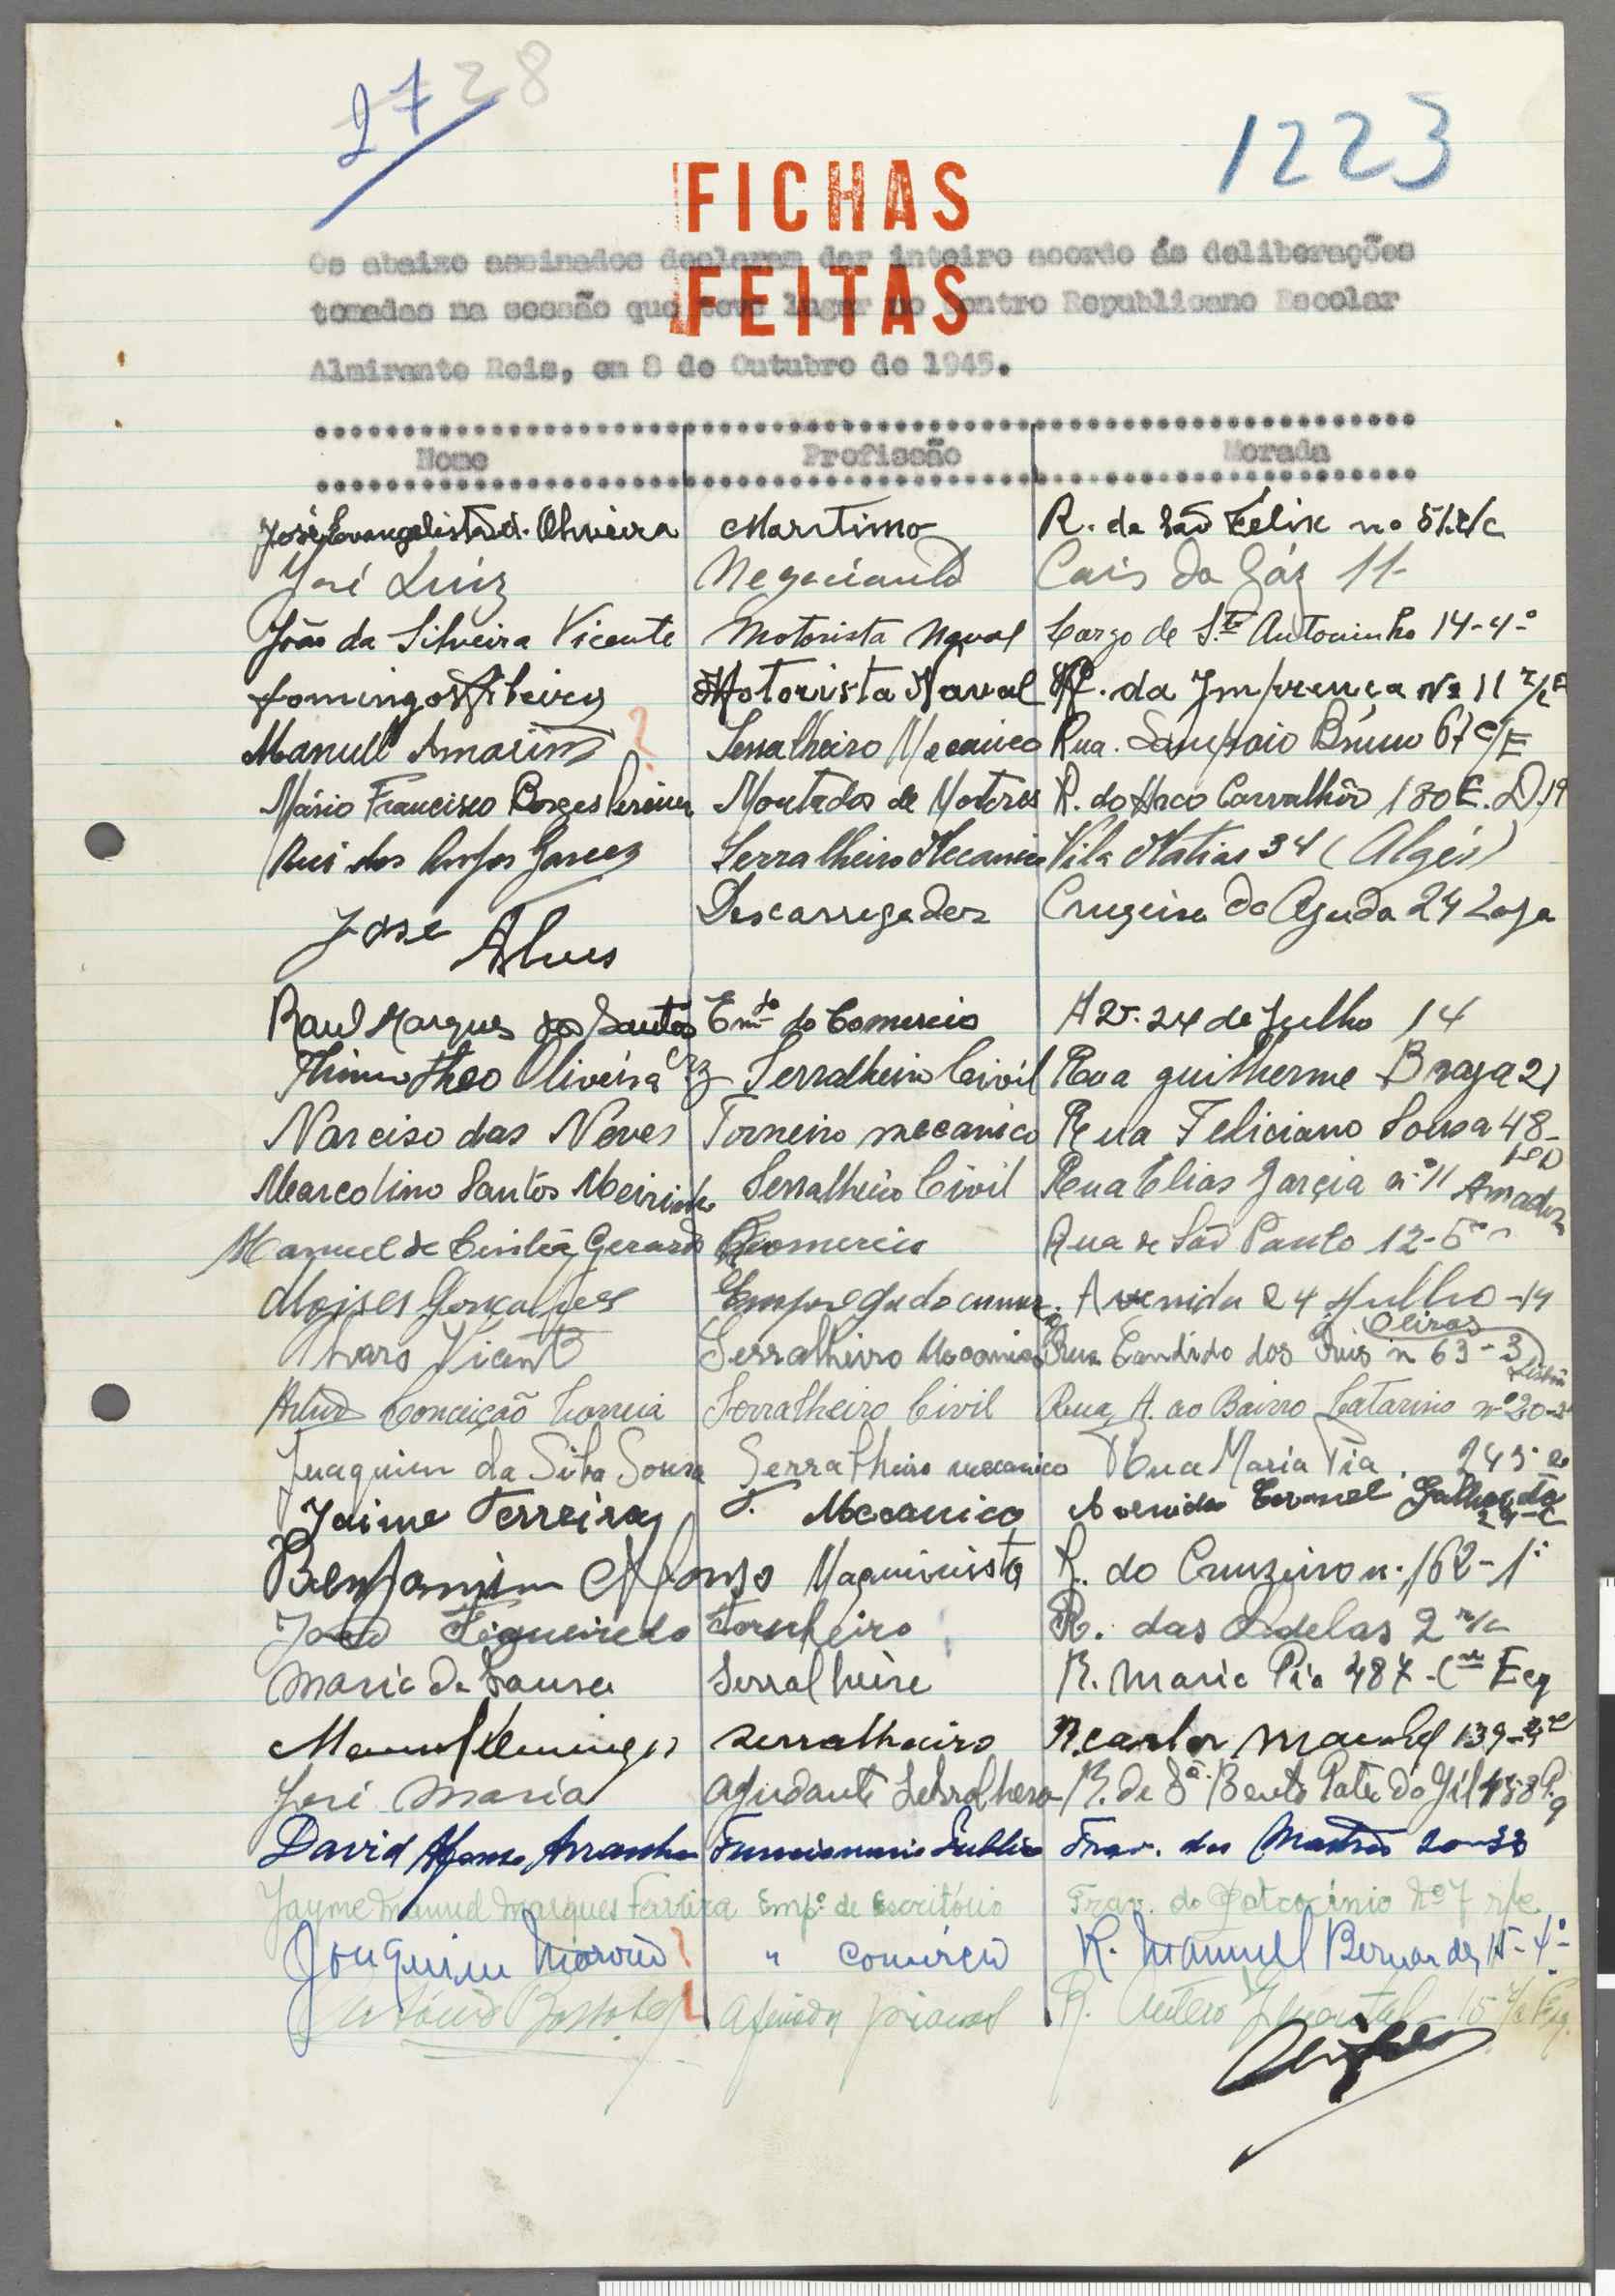 27 28
1223
FICHAS
FEITAS
Os abaixo assinados declaram dar inteiro acordo ás deliberações
tomadas na sessão que teve lugar no Centro Republicano Escolar
Almirante Reis, em 8 de Outubro de 1945.
Nome Profissão Morada
José Evangelista d. Oliveira Maritimo R. de São Felix no 51 r/c
José Luiz Negociante Cais do Gáz 11-
João da Silveira Vicente Motorista Naval Largo de S.to Antoninho 14-4º
Domingos Ribeiro Motorista Naval R. da Imprença Nº 11 r/c E
Manuel Amorim ? Serralheiro Mecanico Rua Sampaio Bruno 67 c/E
Mário Francisco Borges Pereira Montador de Motores R. do Arco Carvalhão 180 E. D. 19
Rui dos Anjos Garcez Serralheiro Mecanico Vila Matias 34 (Algés)
José Alves Descarregador Cruzeiro da Ajuda 24 Loja
Raul Marques dos Santos Em.do do Comercio Av. 24 de Julho 14
Oliveira Serralheiro Civil Rua Guilherme Braga 21
Narciso das Neves Torneiro mecanico Rua Feliciano Sousa 48-
Marcolino Santos Meirinho Serralheiro Civil Rua Elias Garcia nº 11 Amadora
Manuel de Gerardo Comercio Rua de São Paulo 12-5º
Moises Gonçalves Empregado comercio Avenida 24 Julho -14
Alvaro Vicente Serralheiro Mecanico Rua Candido dos Reis n 63-3 Oeiras
Artur Conceição Correia Serralheiro Civil Rua A. ao Bairro Catarino nº 20-2º
Juaquim da Silva Sousa Serralheiro mecanico Rua Maria Pia. 243-2º
Jaime Ferreira T. Mecanico Avenida Coronel Galhardo 24-C
Benjamim Afonso Maquinista R. do Cruzeiro n. 162-1º
João Figueiredo Torneiro R. das Adelas 2 r/c
Mario de Sousa Serralheiro R. Maria Pia 487 - C.ve Esq
Manuel Domingos serralheiro R. carlos Mardel 139-
José Maria Ajudante Serralheiro R. de S. Bento Pate do Gil 458 P. 9
David Afonso Arranha Funcionario Publico Trav. dos Mastros 20-3º
Jayme Manuel Marques Ferreira Empº de Escritório Trav. do Patrocínio Nº 7 r/c.
Joaquim ? " comércio R. Manuel Bernardes 15-4º
António Afinador pianos R. Antero Quental 15 r/c Esq.